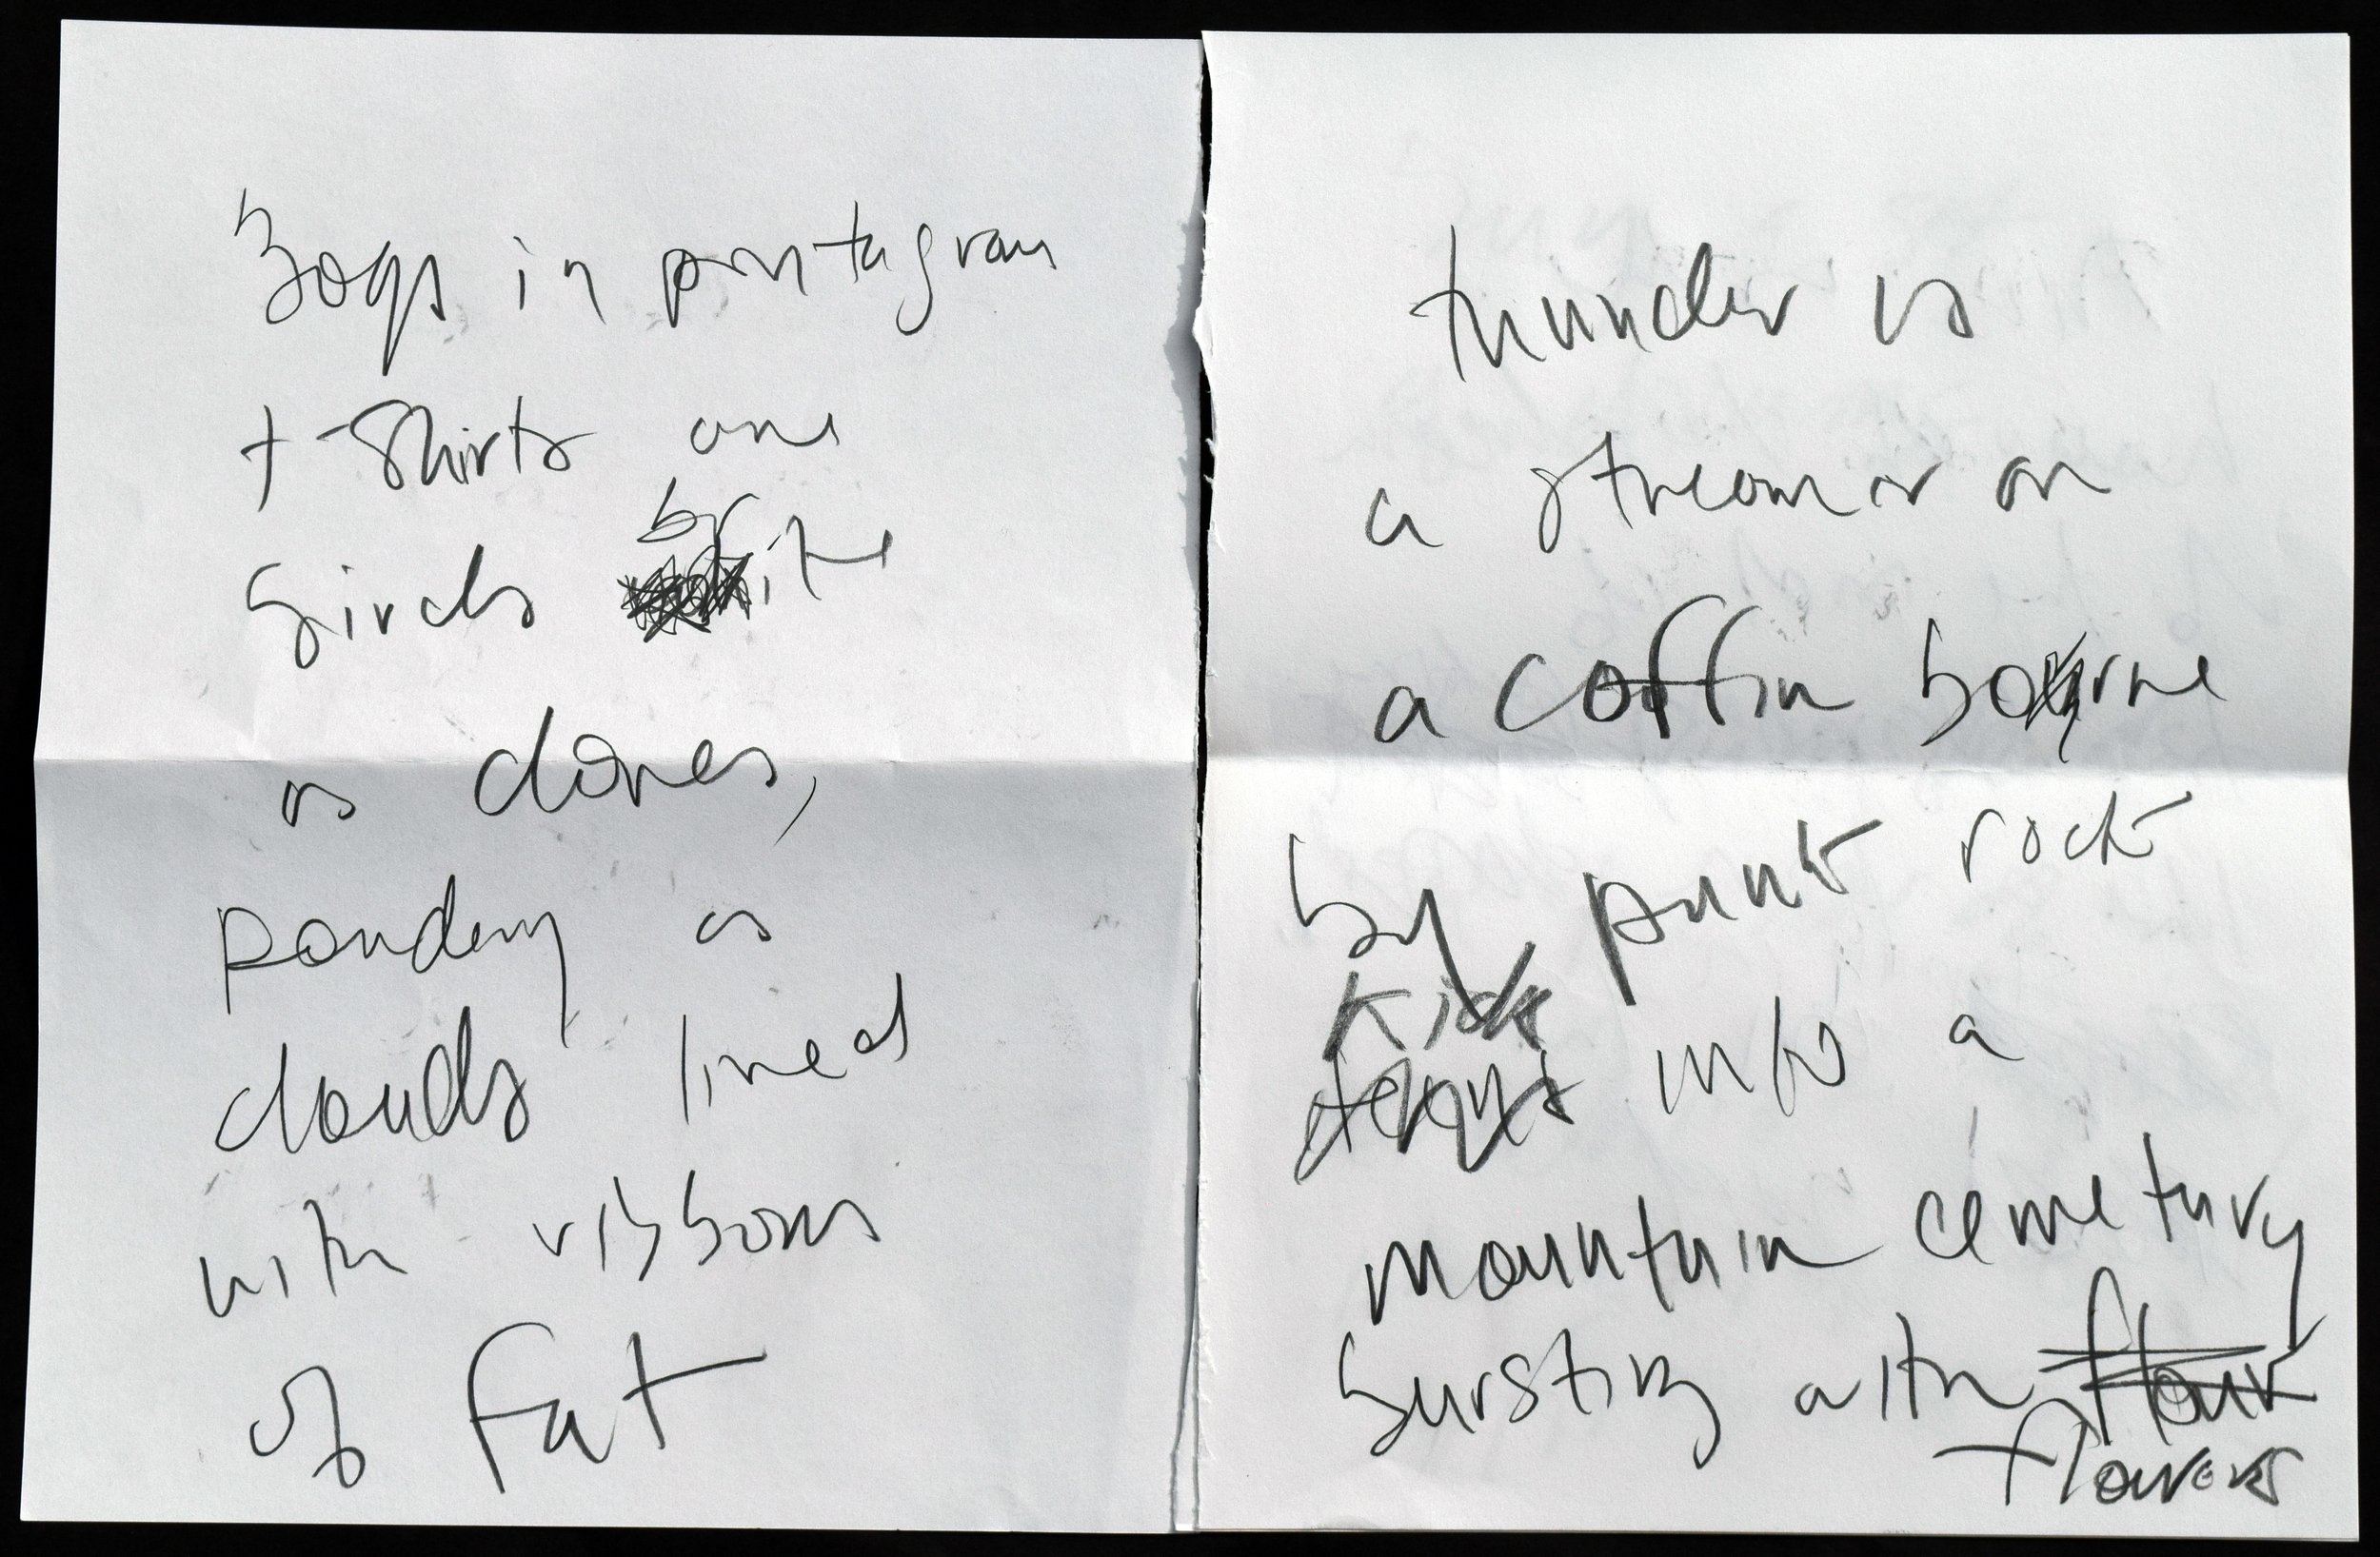 boys in pentagram
t-shirts are
birds brite
as doves,
as
clouds lined
with ribbons
of fat
thunder is
a streamer on
a coffin borne
by punk rock
kids
into a
mountain cemetary
bursting with flour
flowers